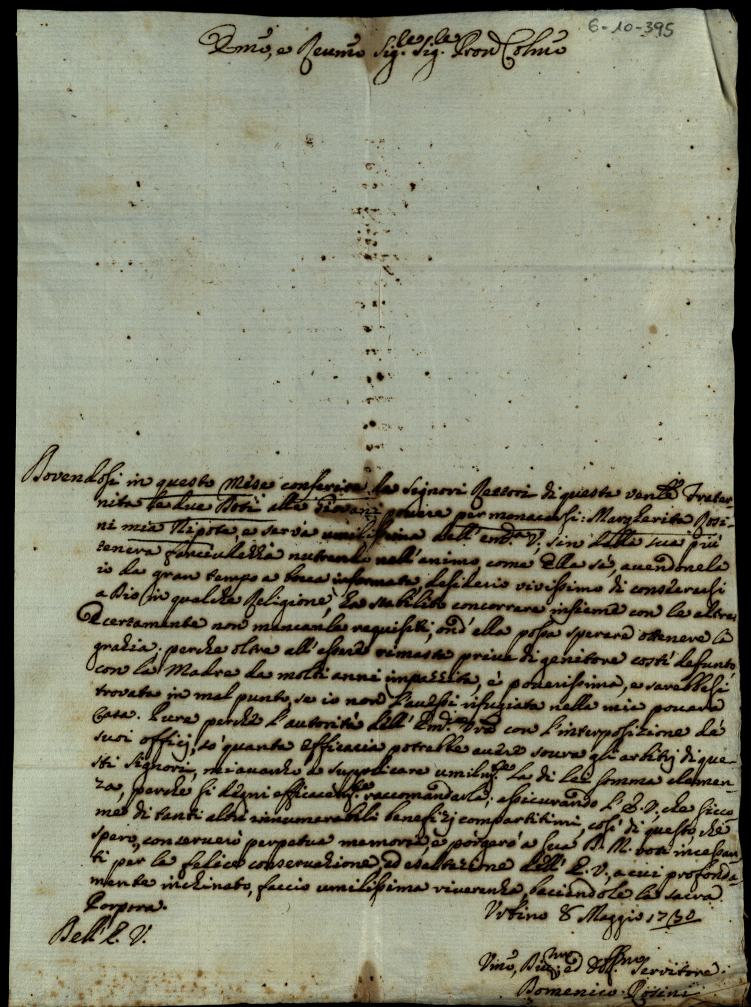 6-10-395
Emõ, e Reumõ Sig.re Sig.re Pron Colmõ
Dovendosi in questo Mese conferire da Signori Rettori di questa ven. Frater-
nita le due Doti alle Giovani povere per monacarsi: Margherita Rosi-
ni mia Nipote, e serva umilissima dell' em. V, sin dalla sua più
tenera fanciullezza nutrendo nell'animo, come Ella sà, avendonela
io da gran tempo a bocca informata, desiderio vivissimo di consecrarsi
a Dio in qualche Religione, hà stabilito concorrere insieme con le altre.
E certamente non mancanle requisiti, ond' ella possa sperare ottenere la
grazia: perche oltre all'essere rimasta priva di genitore costì defunto,
con la Madre da molti anni impazzita, è poverissima, e sarebbesi
trovata in mal punto, se io non l'avessi rifugiata nella mia povera
Casa. Pure perchè l'autorità dell' Em. Vrã con l'interposizione de'
suoi officj, sò quanta efficacia potrebbe avere sovra gli arbitrj di que-
sti Signori, mi avanzo a supplicare umilm.te la di lei somma clemen-
za, perche si degni efficacem.te raccomandarla; assicurando l' E. V, che sicco-
me di tanti altri innumerabili benefizj compartitimi, così di questo, che
spero, conserverò perpetua memoria, e porgerò a Sua D. M. voti incessan-
ti per la felice conservazione, ed esaltazione dell' E. V, a cui profonda-
mente inchinato, faccio umilissima riverenza, baciandole la sacra
Porpora.
Urbino 8 Maggio 1730
Dell' E. V.
Umõ, Div.mo ed Obb.mo Servitore
Domenico Rosini